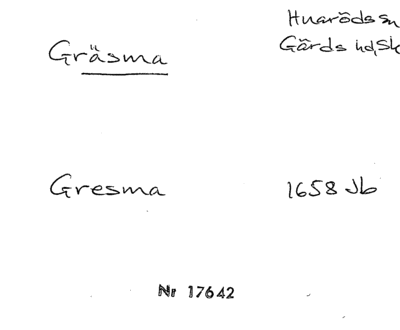 Gräsma
Huarödssn
Gärds hd, Sk
Gresma
1658 Jb
Nr 17642